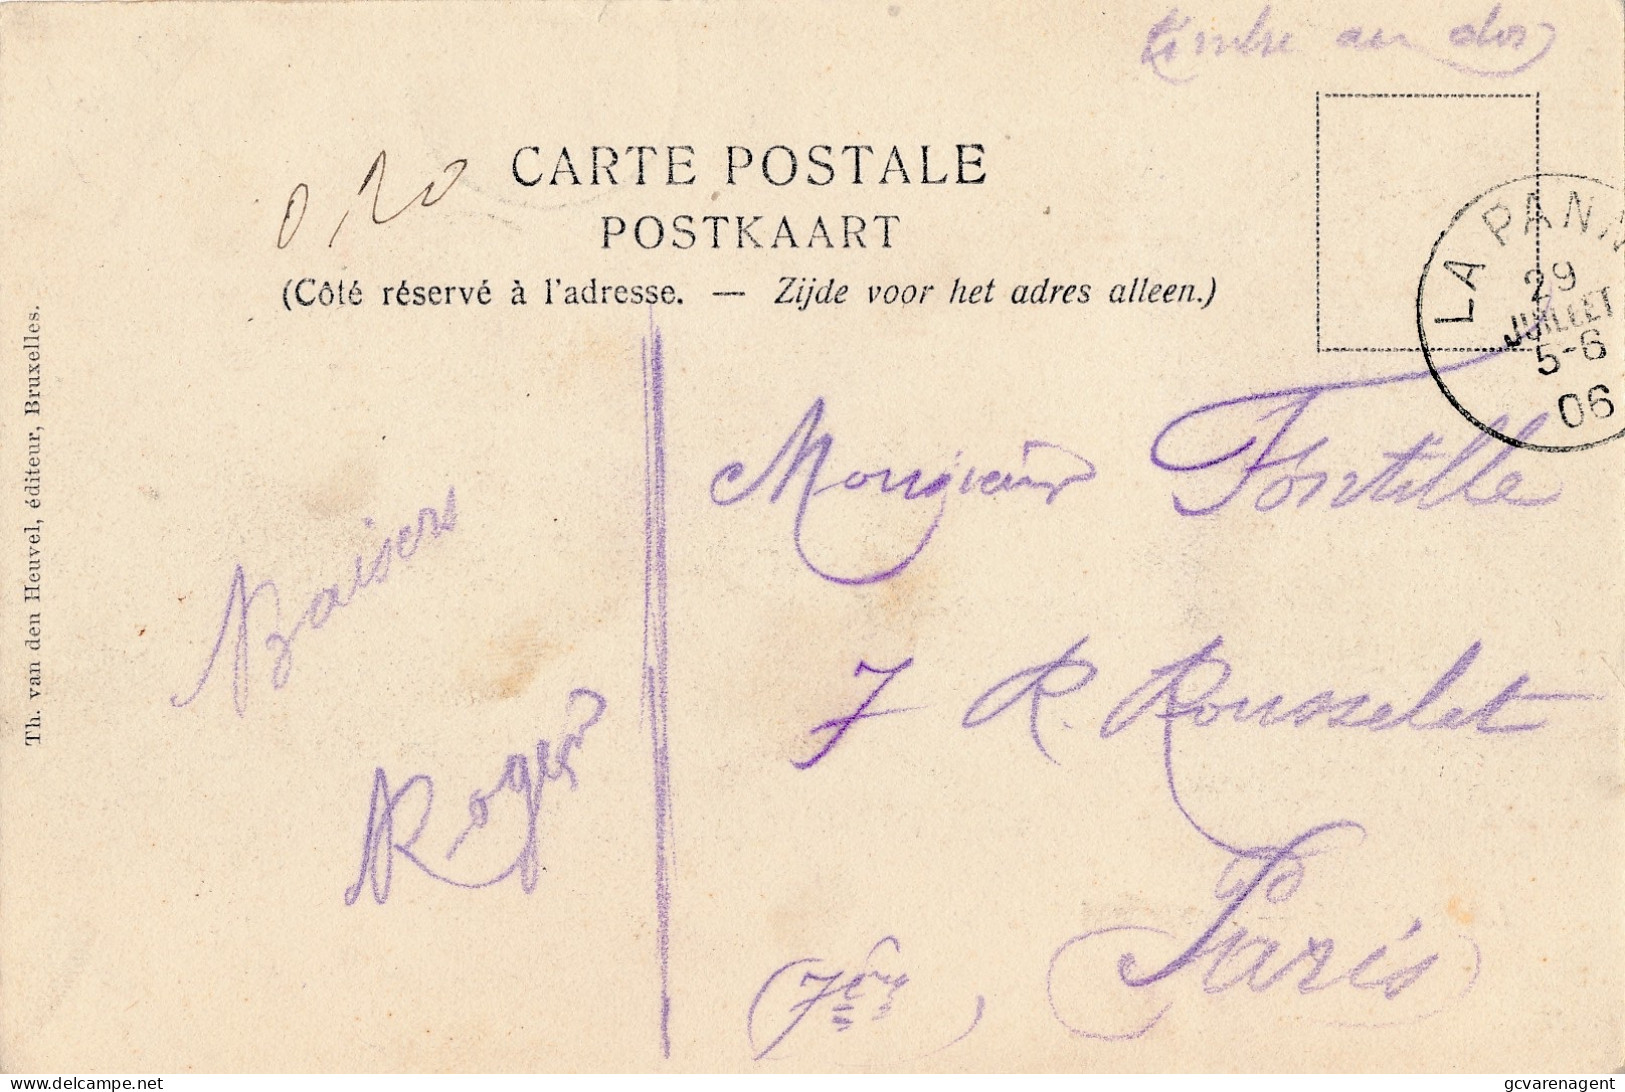 timbre au dos
0,20
CARTE POSTALE
POSTKAART
(Côté réservé à l'adresse. — Zijde voor het adres alleen.)
LA PANN
29
JUILLET
5-6
06
Th. van den Heuvel, éditeur, Bruxelles.
Baisers
Roger
Monsieur Fontille
7 R. Rousselet
Paris
(7ème)
delcampe.net
gcvarenagent